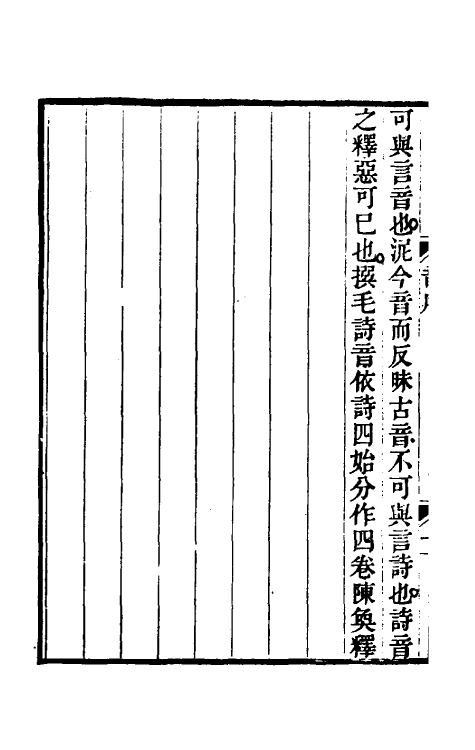 可與言音也泥今音而反昧古音不可與言詩也詩音
之釋惡可巳也撰毛詩音依詩四始分作四卷陳奐釋